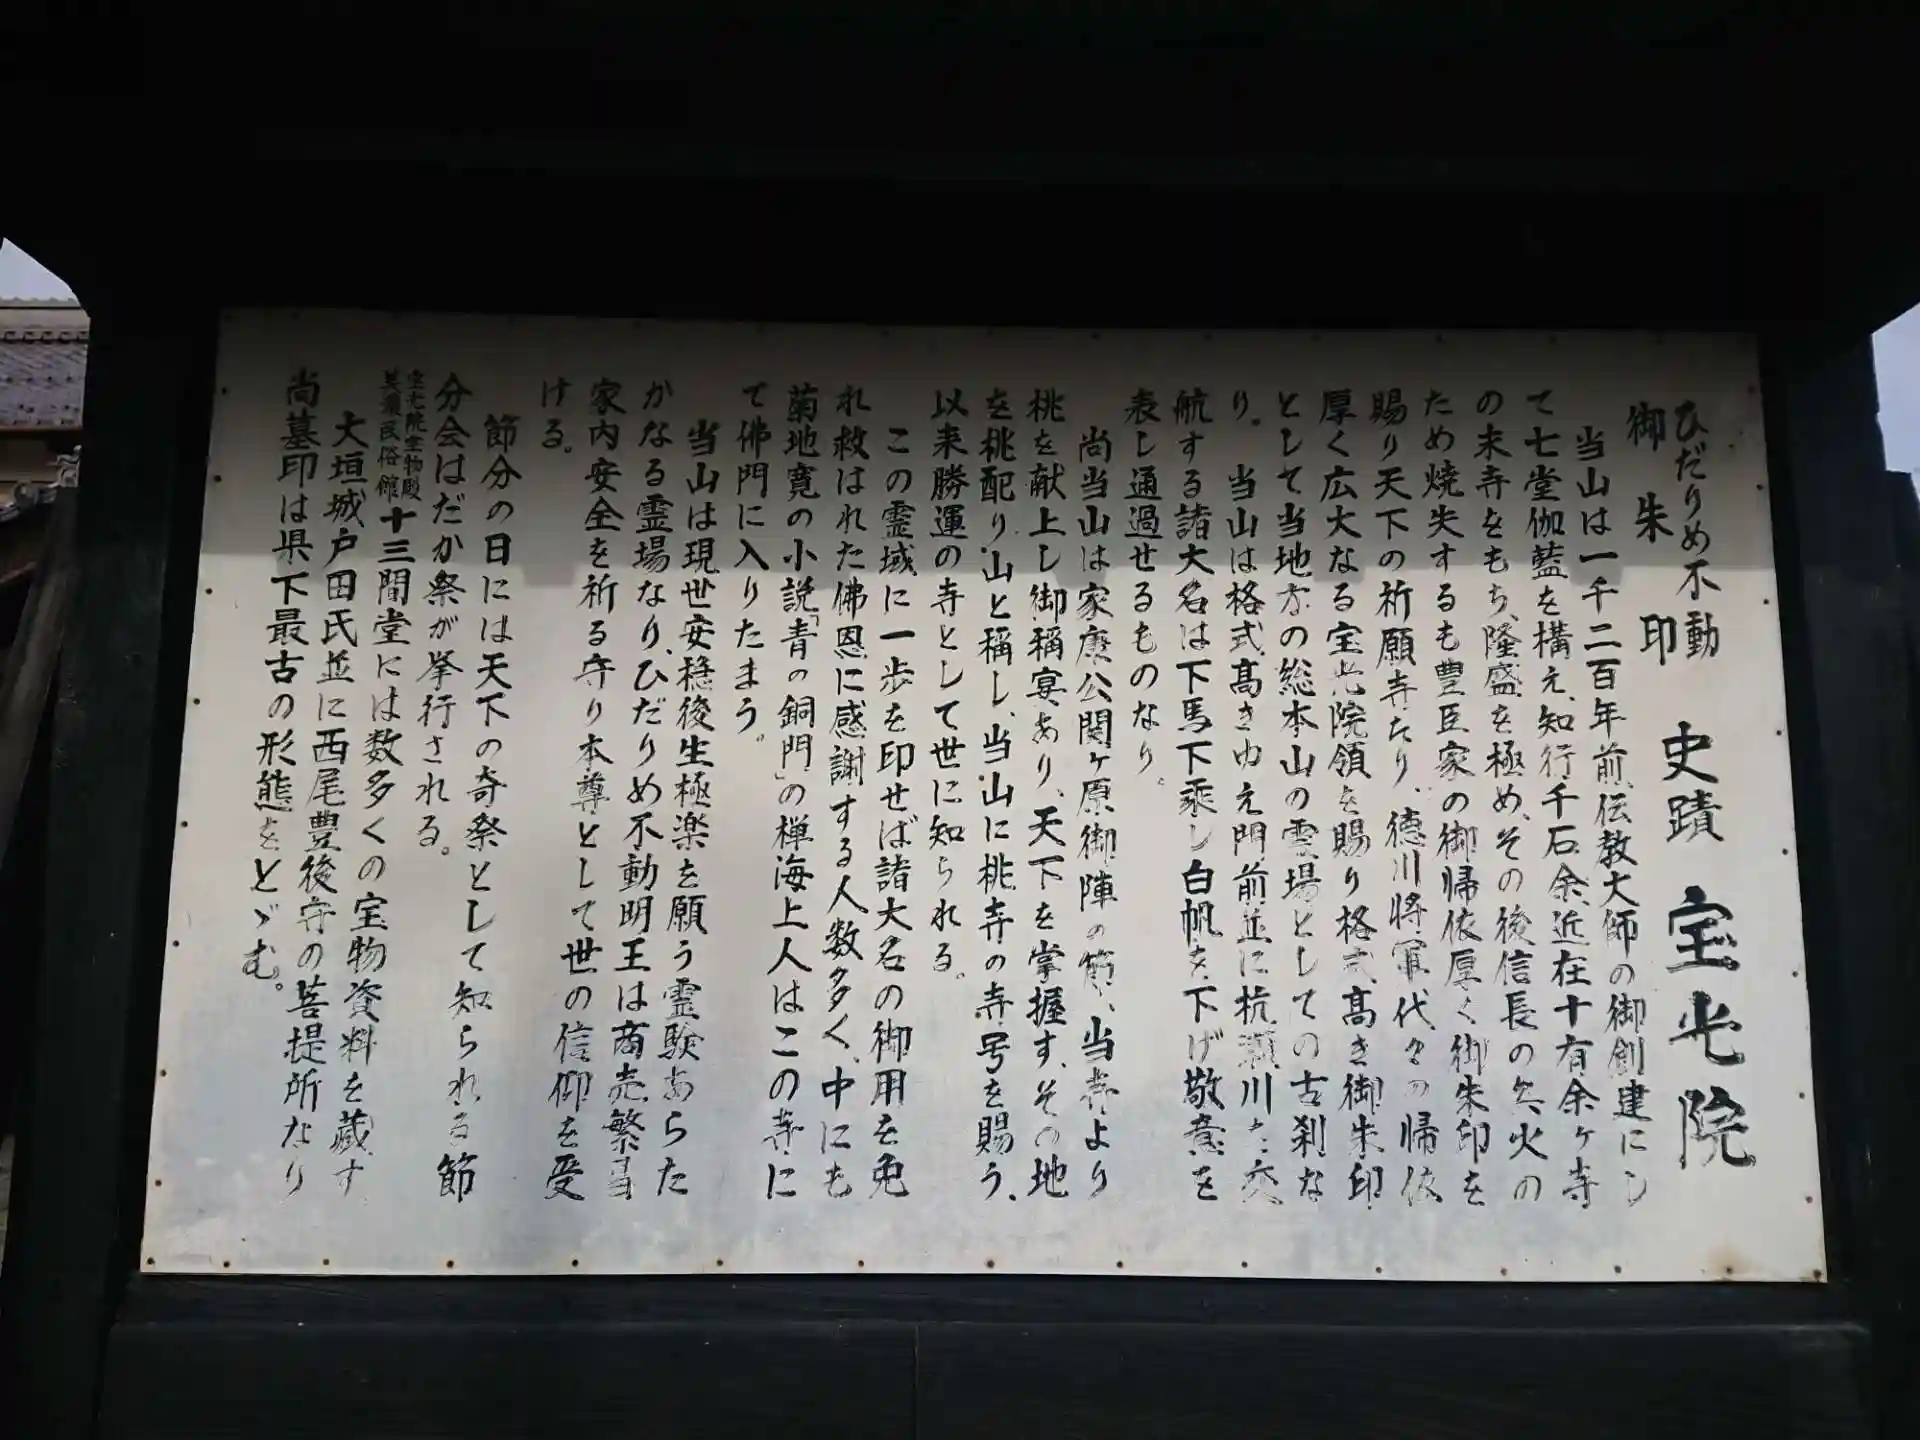 ひだりめ不動
御朱印
史蹟 宝光院
当山は一千二百年前、伝教大師の御創建にし
て七堂伽藍を構え、知行千石余、近在十有余ヶ寺
の末寺をもち、隆盛を極め、その後信長の兵火の
ため焼失するも豊臣家の御帰依厚く御朱印を
賜り天下の祈願寺たり、徳川将軍代々の帰依
厚く広大なる宝光院領を賜り格式高き御朱印
として当地方の総本山の霊場としての古刹な
り。当山は格式高きゆえ門前並に杭瀬川を交
航する諸大名は下馬下乘し白帆を下げ敬意を
表し通過せるものなり。
尚当山は家康公関ヶ原御陣の節、当寺より
桃を献上し御稱宴あり、天下を掌握す、その地
を桃配り山と稱し、当山に桃寺の寺号を賜う、
以来勝運の寺として世に知られる。
この霊域に一歩を印せば諸大名の御用を免
れ救はれた佛恩に感謝する人数多く、中にも
菊地寛の小説「青の銅門」の禅海上人はこの寺に
て佛門に入りたまう。
当山は現世安穏後生極楽を願う霊験あらた
かなる霊場なり、ひだりめ不動明王は商売繁昌
家内安全を祈る守り本尊として世の信仰を受
ける。
節分の日には天下の奇祭として知られる節
分会はだか祭が挙行される。
宝光院宝物殿
美濃民俗館
十三間堂には数多くの宝物資料を蔵す
大垣城戸田氏並に西尾豊後守の菩提所なり
尚墓印は県下最古の形態をとゞむ。